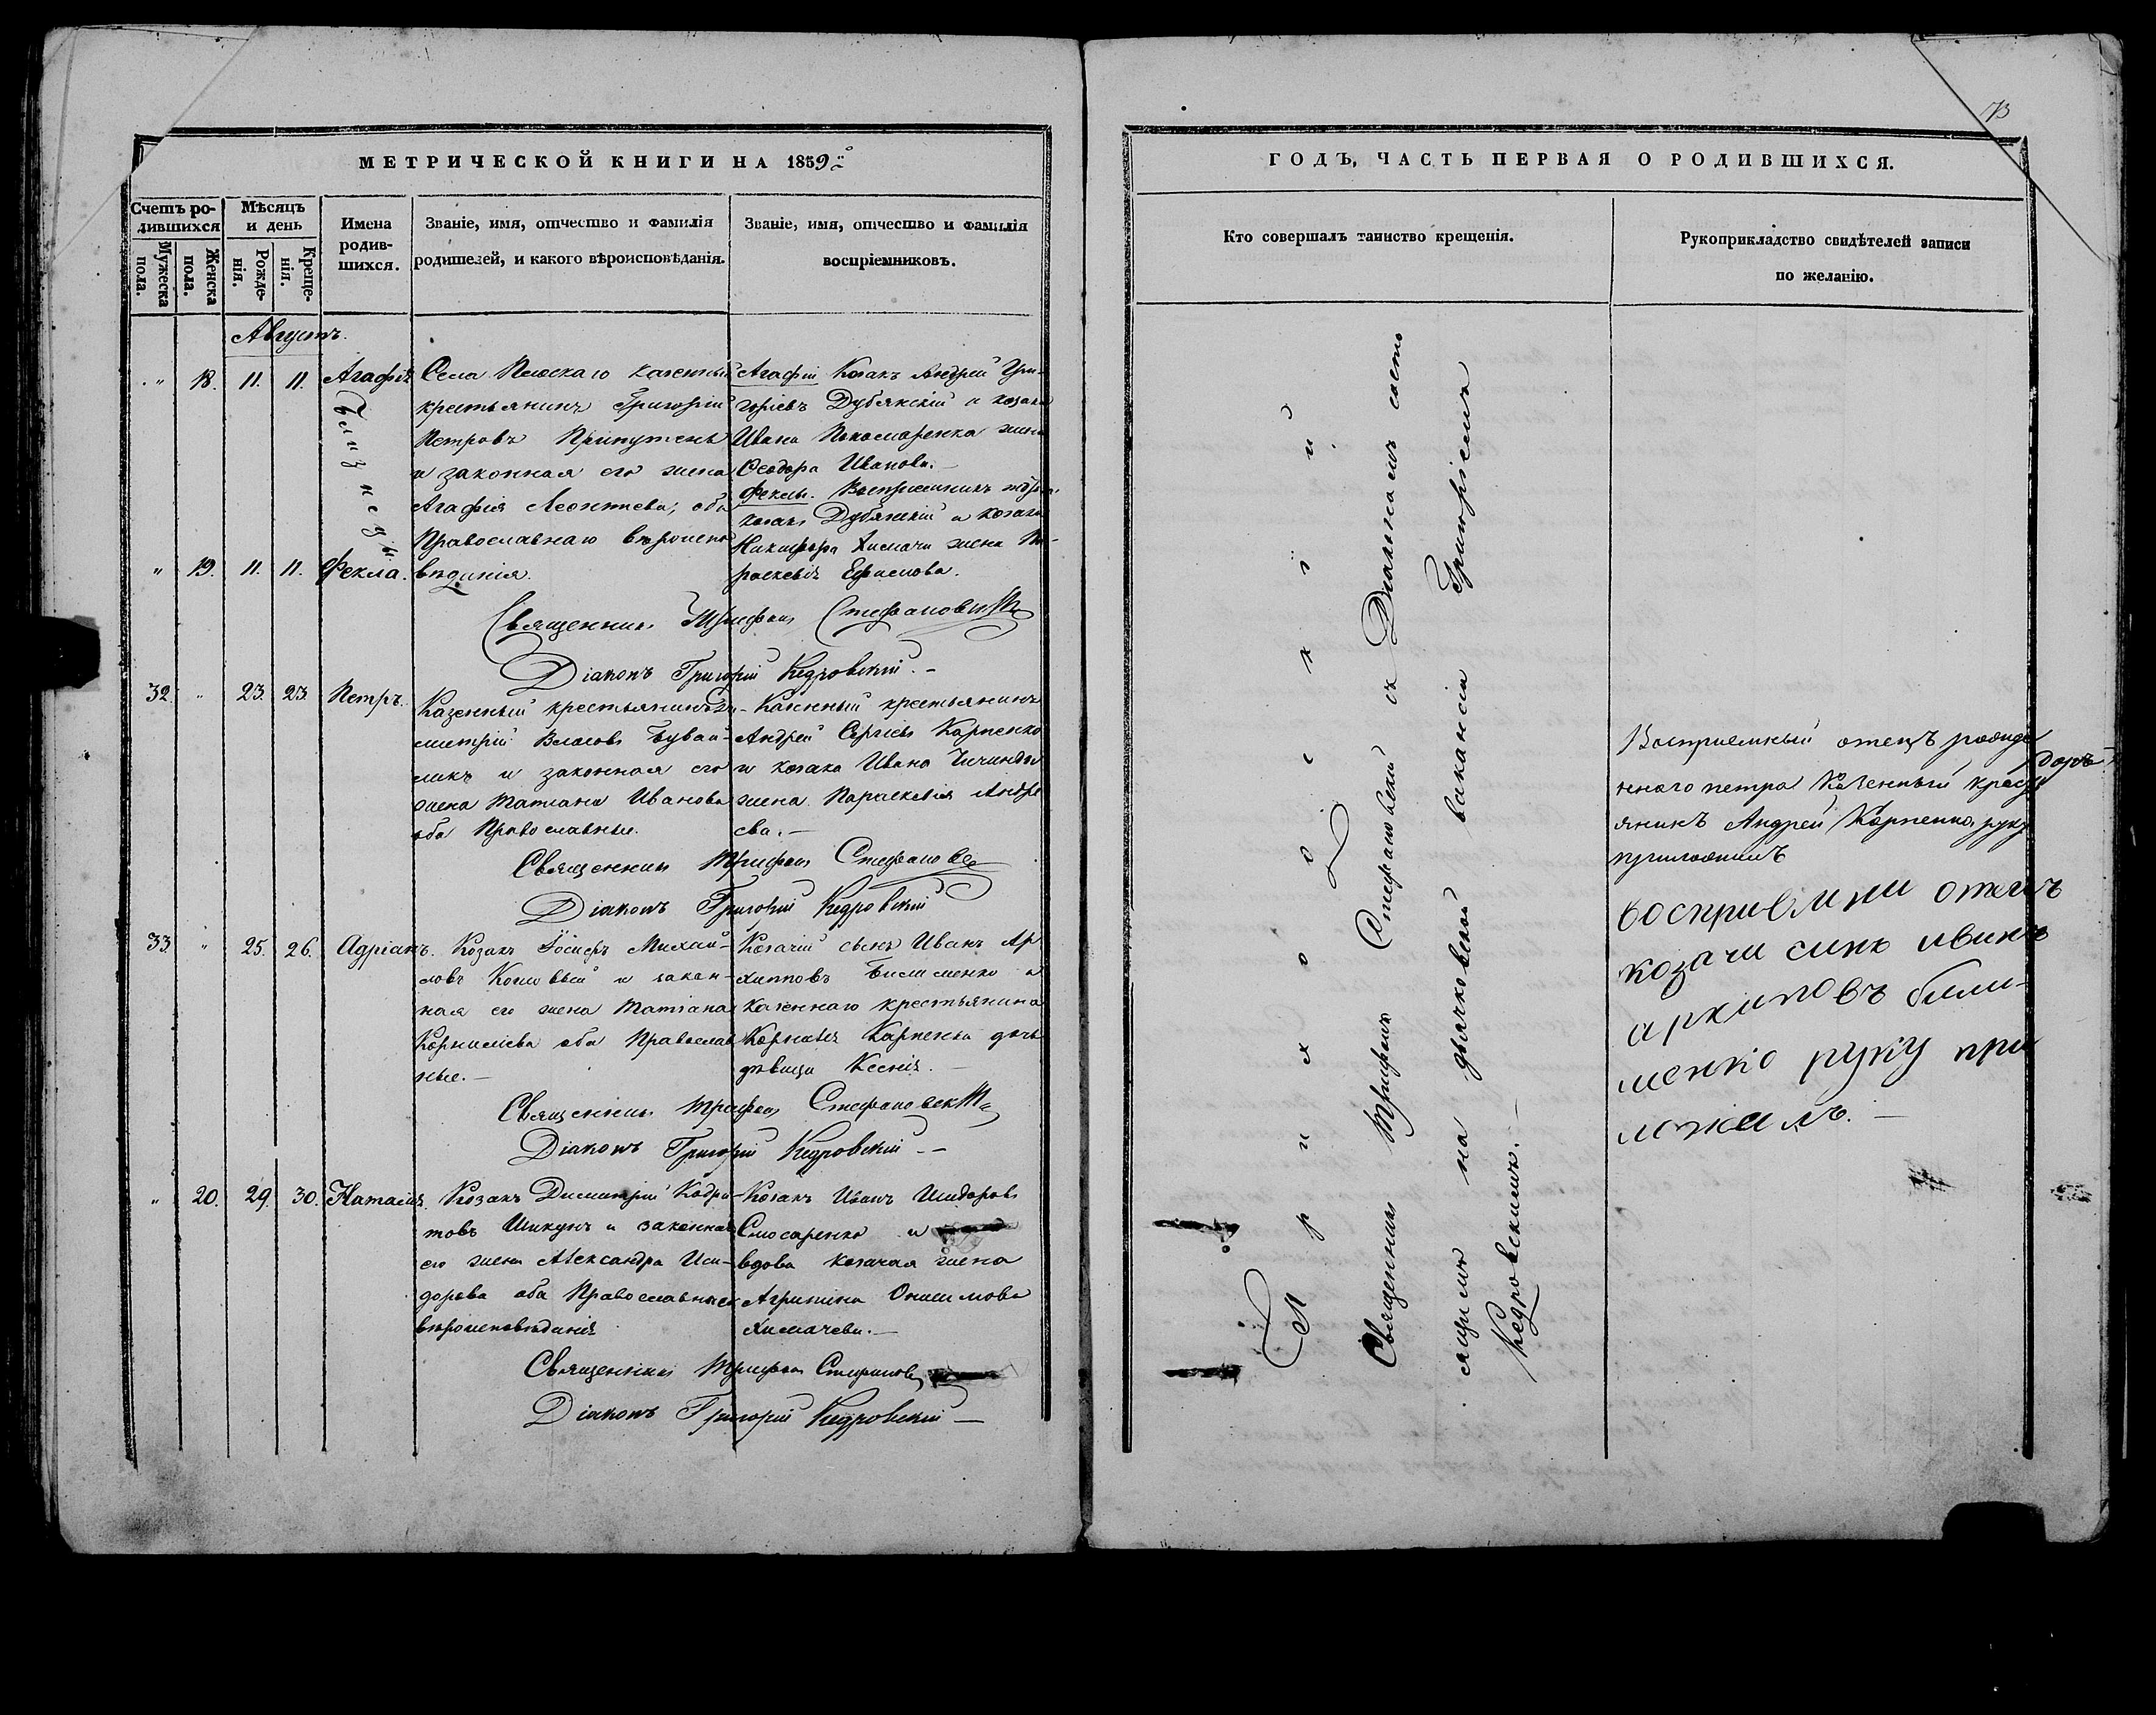 МЕТРИЧЕСКОЙ КНИГИ НА 1859й
Счетъ ро-
дившихся
Мѣсяцъ
и день
Имена
родив-
шихся.
Званіе, имя, отчество и фамилія
родителей, и какого вѣроисповѣданія.
Званіе, имя, отчество и фамилія
воспріемниковъ.
Мужеска
пола.
Женска
пола.
Рожде-
нія.
Креще-
нія.
Августъ.
" 18. 11. 11. Агафія
Близнецы
Села Плоскаго казенный
крестьянинъ Григорій
Петровъ Припутень
и законная его жена
Агафія Леонтева, оба
Православнаго вѣроиспо
вѣданія.
Агафіи Козакъ Андрей Гри-
горіевъ Дубянскій и козака
Ивана Пономаренка жена
Ѳеодора Иванова.
Феклы. Воспріемникъ
козакъ Дубянскій и козака
Никифора Хисмачи жена Па-
раскевія Ефимова.
" 19. 11. 11. Фекла.
Священникъ Трифонъ Стефановскій
Діаконъ Григорій Кедровскій. –
32. " 23. 23. Петръ.
Казенный крестьянинъ Ди-
митрій Власовъ Бувай-
ликъ и законная его
жена Татіана Иванова
оба Православные.
Казенный крестьянинъ
Андрей Сергіевъ Карпенко
и козака Ивана Чичинды
жена Параскевія Андре
ева. –
Священникъ Трифонъ Стефановс
Діаконъ Григорій Кедровскій
33. " 25. 26. Адріанъ.
Козакъ Іосифъ Михай-
ловъ Кошовый и закон-
ная его жена Татіана
Корниліева оба Православ
ные. –
Козачій сынъ Иванъ Ар
хиповъ Билименко и
казеннаго крестьянина
Корнилія Карпенка дочь
дѣвица Ксенія. –
Священникъ Трифонъ Стефановскій
Діаконъ Григорій Кедровскій –
" 20. 29. 30. Наталія.
Козакъ Димитрій Кодра-
товъ Шикунъ и законная
его жена Александра Иси-
дорова оба Православнаго
вѣроисповѣданія
Козакъ Иванъ Исидоровъ
Слюсаренко и
вдова козачая жена
Агрипина Онисимова
Хисмачева. –
Священникъ Трифонъ Стефановс
Діаконъ Григорій Кедровскій –
73
ГОДЪ, ЧАСТЬ ПЕРВАЯ О РОДИВШИХСЯ.
Кто совершалъ таинство крещенія.
Рукоприкладство свидѣтелей записи
по желанію.
Приходскій
Священникъ Трифонъ Стефановскій съ Діакономъ состо
ящимъ на дьячковской вакансіи Григоріемъ
Кедровскимъ. –
Восприемный отецъ рожде
нного петра Казенный крест
янинъ Андрей Карпенко руку
приложилъ
восприемни отецъ
козачи синъ иванъ
архиповъ били-
менко руку при
ложилъ. –